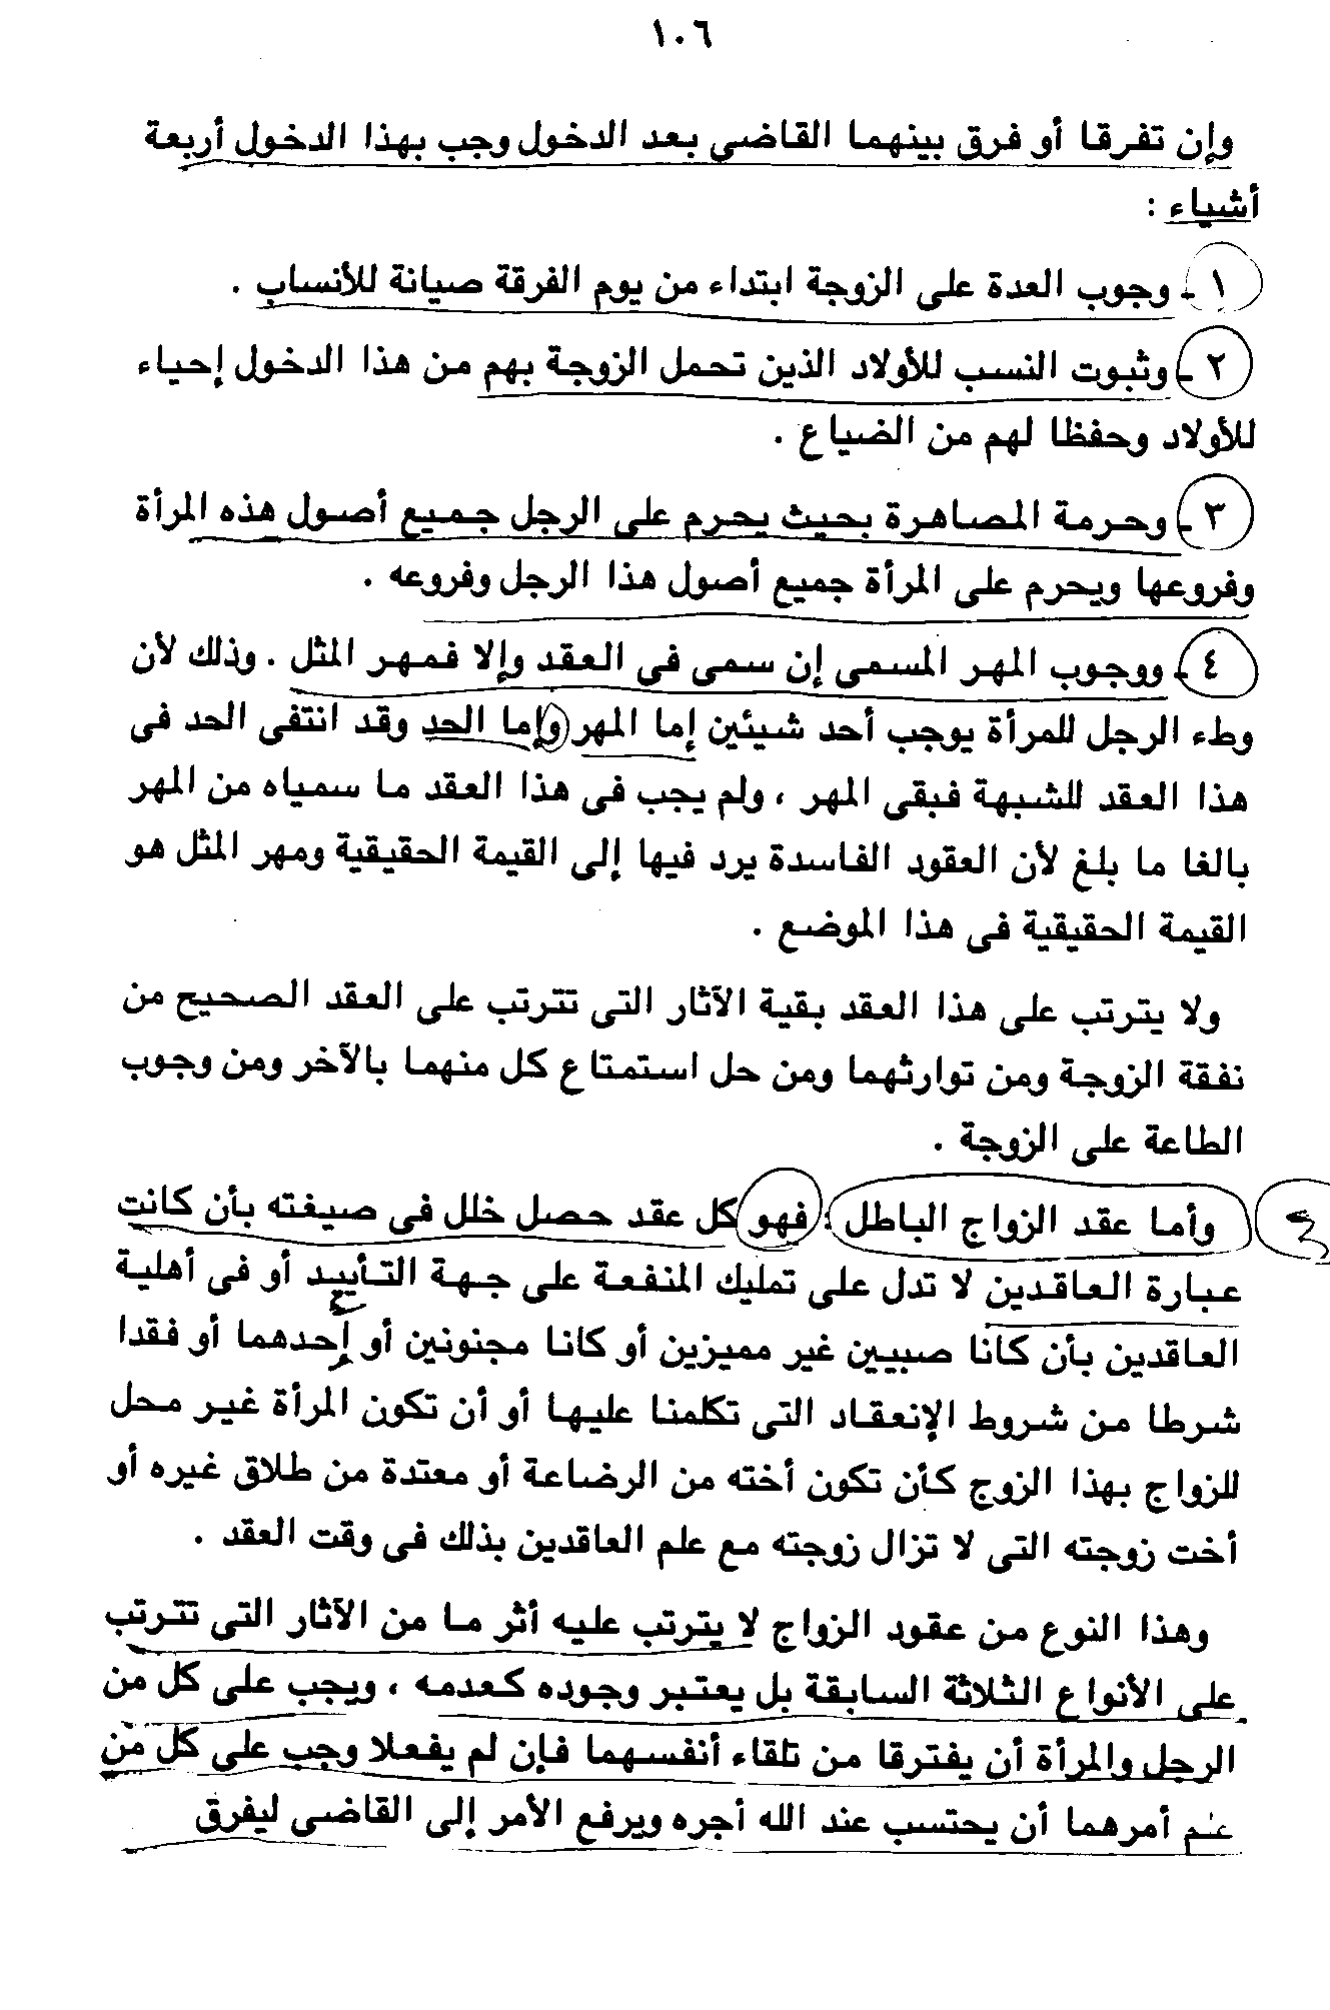 ١٠٦
وإن تفرقا أو فرق بينهما القاضى بعد الدخول وجب بهذا الدخول أربعة
أشياء :
١ ـ وجوب العدة على الزوجة ابتداء من يوم الفرقة صيانة للأنساب .
٢ ـ وثبوت النسب للأولاد الذين تحمل الزوجة بهم من هذا الدخول إحياء
للأولاد وحفظا لهم من الضياع .
٣ ـ وحرمة المصاهرة بحيث يحرم على الرجل جميع أصول هذه المرأة
وفروعها ويحرم على المرأة جميع أصول هذا الرجل وفروعه .
٤ ـ ووجوب المهر المسمى إن سمى فى العقد وإلا فمهر المثل . وذلك لأن
وطء الرجل للمرأة يوجب أحد شيئين إما المهر وإما الحد وقد انتفى الحد فى
هذا العقد للشبهة فبقى المهر ، ولم يجب فى هذا العقد ما سمياه من المهر
بالغا ما بلغ لأن العقود الفاسدة يرد فيها إلى القيمة الحقيقية ومهر المثل هو
القيمة الحقيقية فى هذا الموضع .
ولا يترتب على هذا العقد بقية الآثار التى تترتب على العقد الصحيح من
نفقة الزوجة ومن توارثهما ومن حل استمتاع كل منهما بالآخر ومن وجوب
الطاعة على الزوجة .
وأما عقد الزواج الباطل : فهو كل عقد حصل خلل فى صيغته بأن كانت
عبارة العاقدين لا تدل على تمليك المنفعة على جهة التأبيد أو فى أهلية
العاقدين بأن كانا صبيين غير مميزين أو كانا مجنونين أو إحدهما أو فقدا
شرطا من شروط الإنعقاد التى تكلمنا عليها أو أن تكون المرأة غير محل
للزواج بهذا الزوج كأن تكون أخته من الرضاعة أو معتدة من طلاق غيره أو
أخت زوجته التى لا تزال زوجته مع علم العاقدين بذلك فى وقت العقد .
وهذا النوع من عقود الزواج لا يترتب عليه أثر ما من الآثار التى تترتب
على الأنواع الثلاثة السابقة بل يعتبر وجوده كعدمه ، ويجب على كل من
الرجل والمرأة أن يفترقا من تلقاء أنفسهما فإن لم يفعلا وجب على كل من
علم أمرهما أن يحتسب عند الله أجره ويرفع الأمر إلى القاضى ليفرق